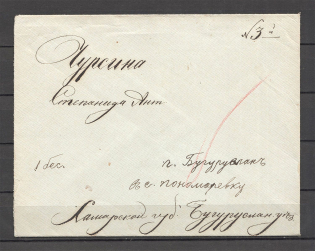 № 3й
Чурсина
Степанида Ант
1 бес.
г. Бугуруслан
в с. Пономаревку
Самарской губ. Бугуруслан у